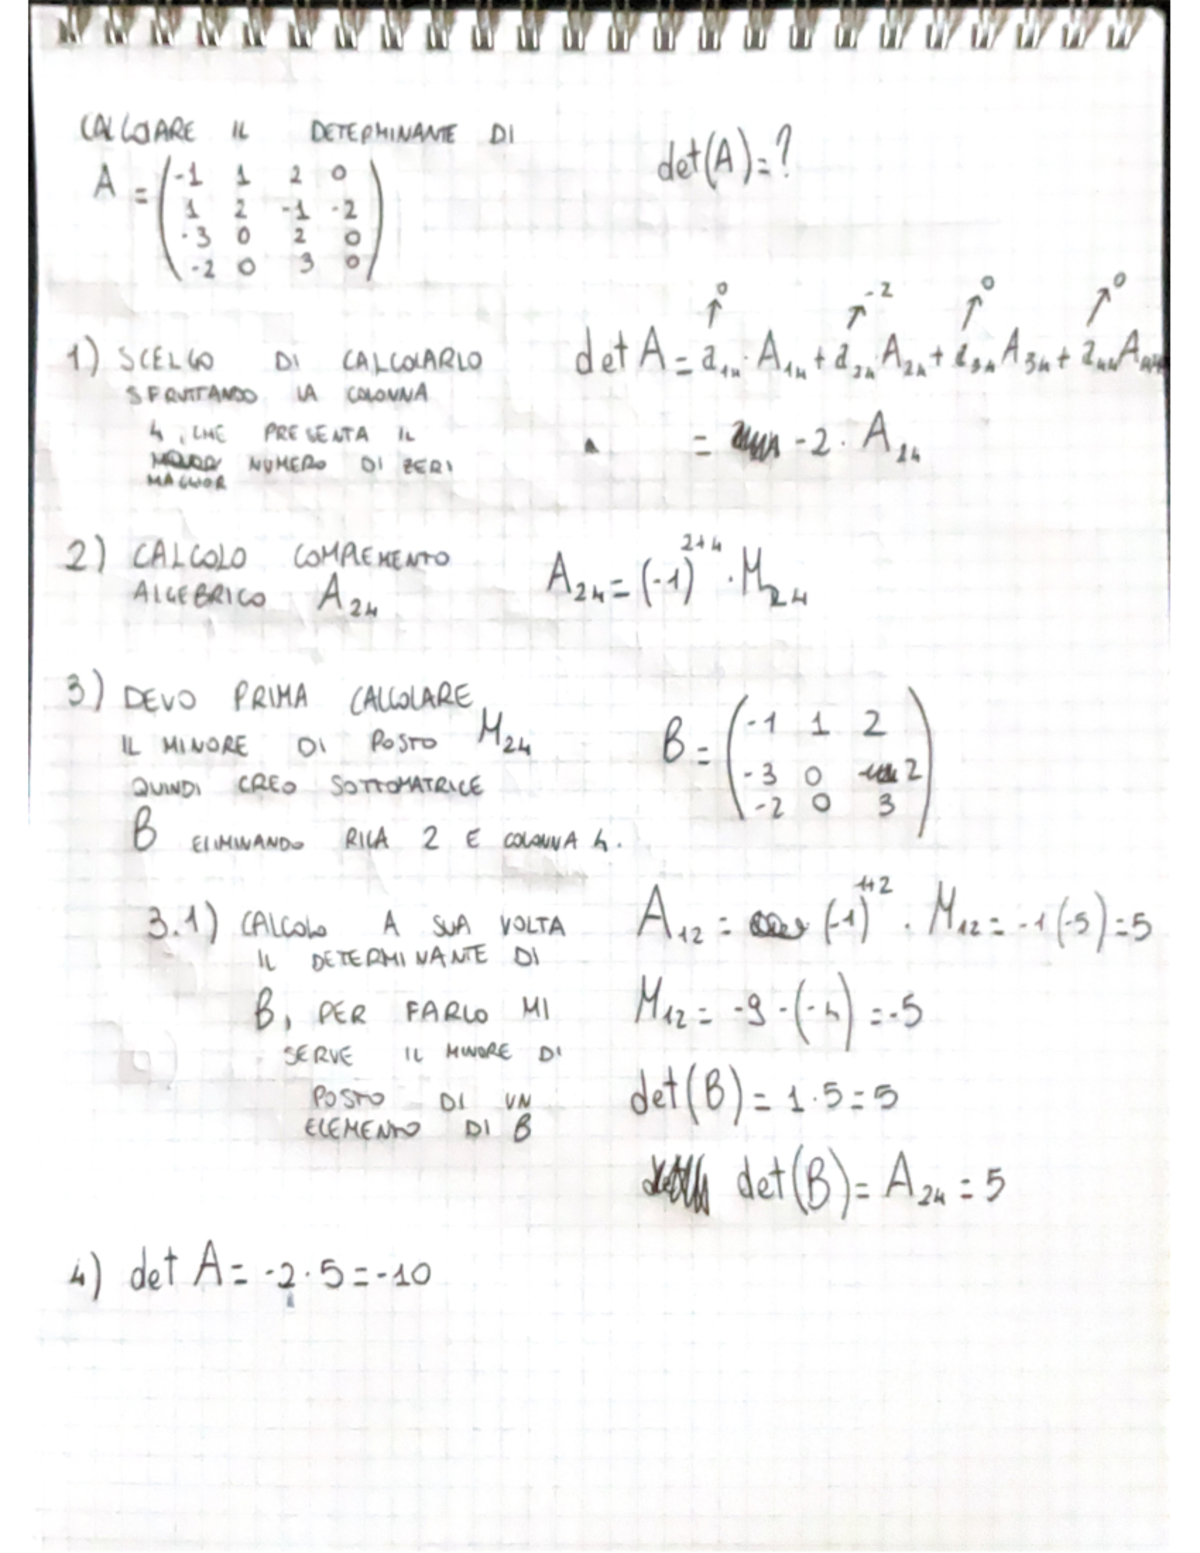 CALCOARE IL DETERMINANTE DI
A = (-1 1 2 0
1 2 -1 -2
-3 0 2 0
-2 0 3 0)
det(A)=?
1) SCELGO DI CALCOLARLO
SFRUTTANDO LA COLONNA
4, CHE PRESENTA IL
NUMERO DI ZERI
MAGGIOR
0 -2 0 0
det A = a14 · A14 + a24 · A24 + a34 A34 + a44 A44
= -2 · A24
2) CALCOLO COMPLEMENTO
ALGEBRICO A24
A24 = (-1)^2+4 · M24
3) DEVO PRIMA CALCOLARE
IL MINORE DI POSTO M24
QUINDI CREO SOTTOMATRICE
B ELIMINANDO RIGA 2 E COLONNA 4.
B = (-1 1 2
-3 0 2
-2 0 3)
3.1) CALCOLO A SUA VOLTA
IL DETERMINANTE DI
B, PER FARLO MI
SERVE IL MINORE DI
POSTO DI UN
ELEMENTO DI B
A12 = (-1)^1+2 · M12 = -1(-5)=5
M12 = -9 -(-4) = -5
det(B) = 1·5 = 5
det(B) = A24 = 5
4) det A = -2·5 = -10